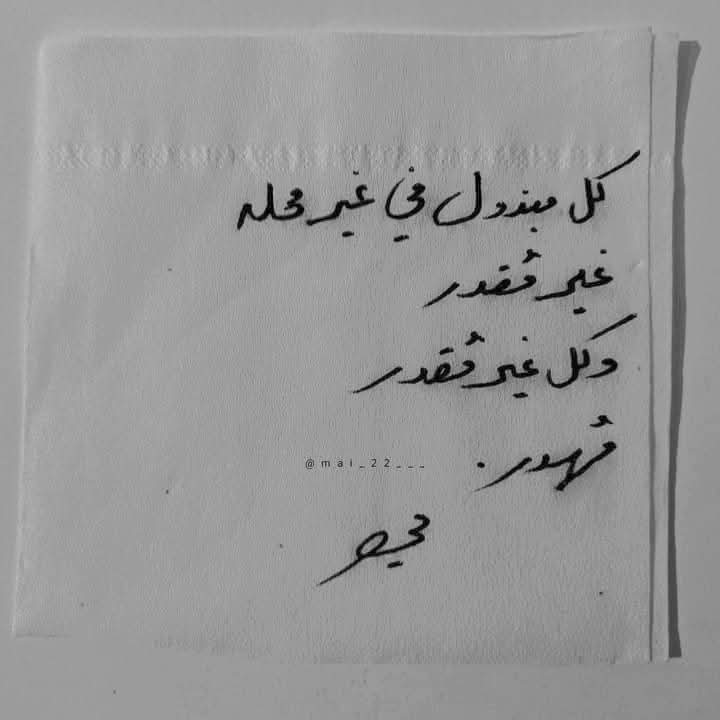 كل مبذول في غير محله
غير مُقدر
وكل غير مُقدر
مُهدر.
@mai_22___
مي